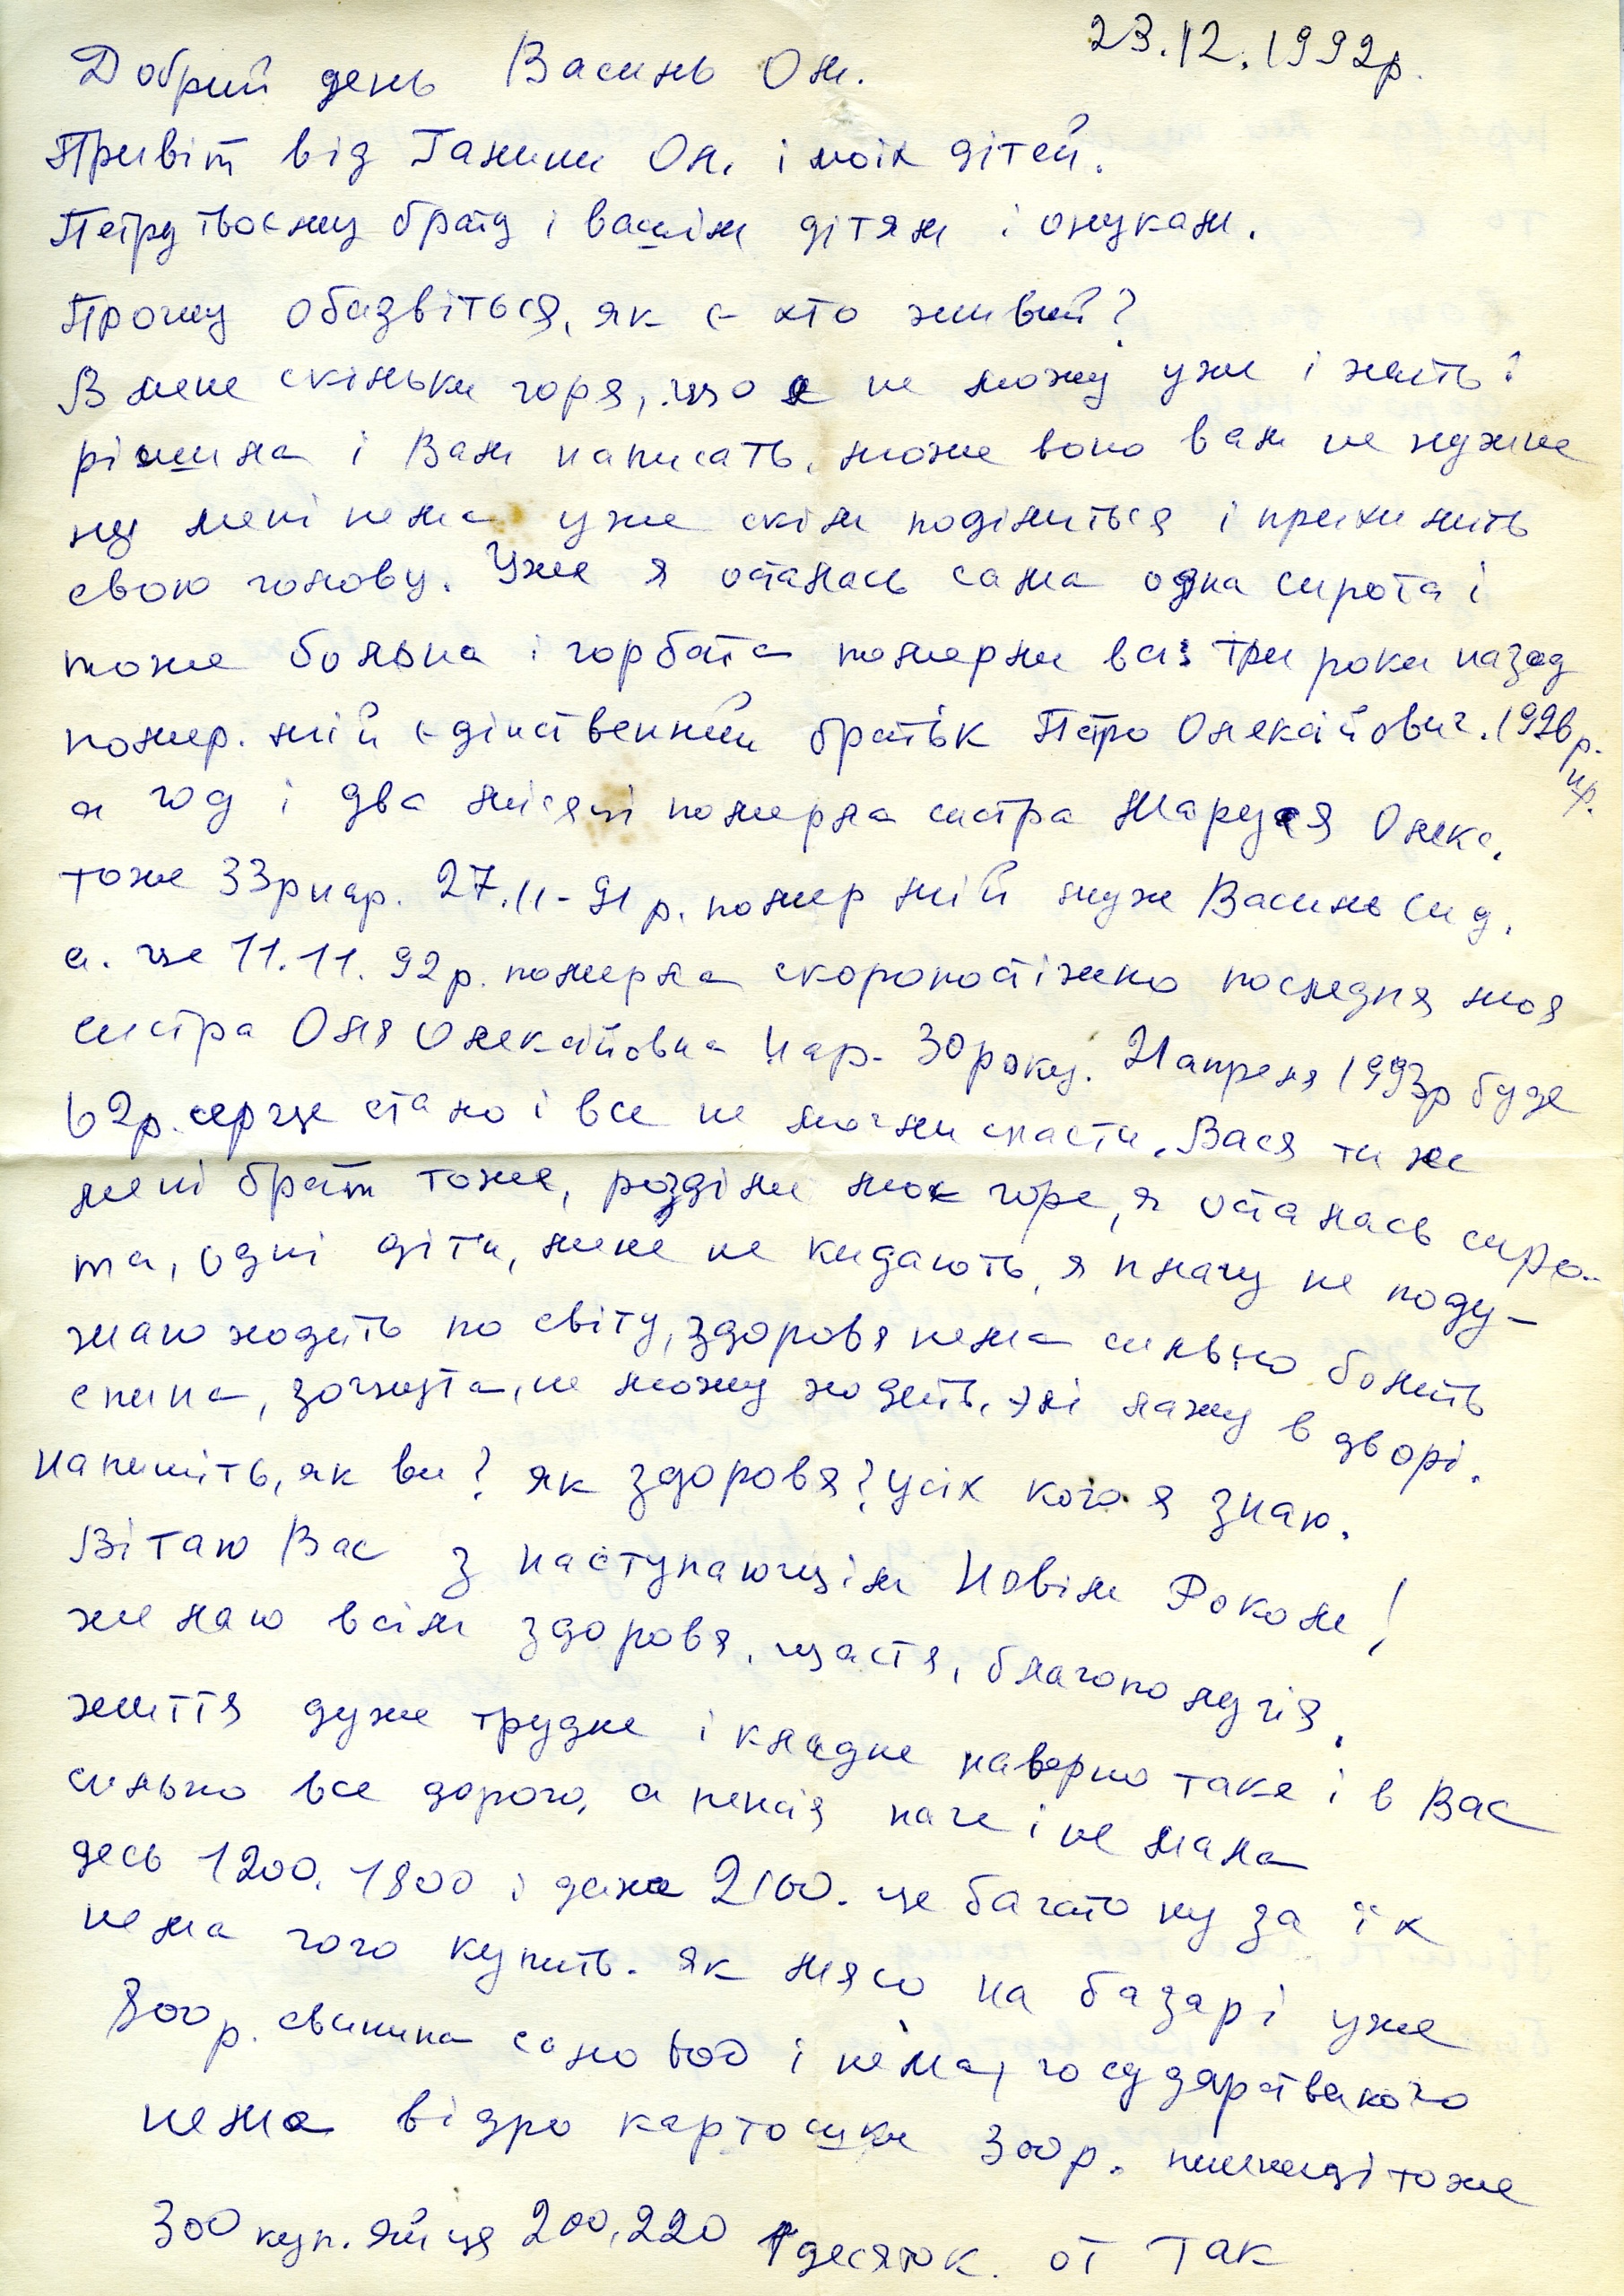 23.12.1992р.
Добрий день Василь Ол.
Привіт від Галини Ол. і моїх дітей.
Петру твоєму брату і вашім дітям і онукам.
Прошу обазвіться, як є хто живий?
В мене скільки горя, що я не можу уже і жить!
рішила і Вам написать, може воно вам не нужне
ну мені нема уже скім поділиться і прихилить
свою голову. Уже я осталась сама одна сирота і
тоже больна і горбата померли всі три роки назад
помер. мій єдінственний братік Петро Олексійович. 1926 р.
нр.
а год і два місяці померла систра Маруся Олекс.
тоже 33р нар. 27.11-91 р. помер мій муж Василь Сид.
а. це 11.11.92р. померла скоропостіжно последня моя
систра Оля Олексійовна нар. 30 року. 21 апреля 1993р буде
62р. серце стало і все не могли спасти. Вася ти же
мені брат тоже, розділи моє горе, я осталась сиро-
та, одні діти, мене не кидають, я плачу не поду-
маю ходить по світу, здоровя нема сильно болить
спина, зогнута, не можу ходить, лажу в дворі.
Напишіть, як ви? як здоровя? усіх кого я знаю.
Вітаю Вас з наступающім Новім Роком!
желаю всім здоровя, щастя, благополучія.
життя дуже трудне і кладне наверно таке і в Вас
сильно все дорого, а пенсія наче і не мала
десь 1200. 1800 і даже 2100. це багато ну за їх
нема чого купить. як мясо на базарі уже
800 р. свинина сало 600 і нема, государствиного
нема відро картошки 300 р. пшениці тоже
300 куп. яйця 200, 220 десяток. от так